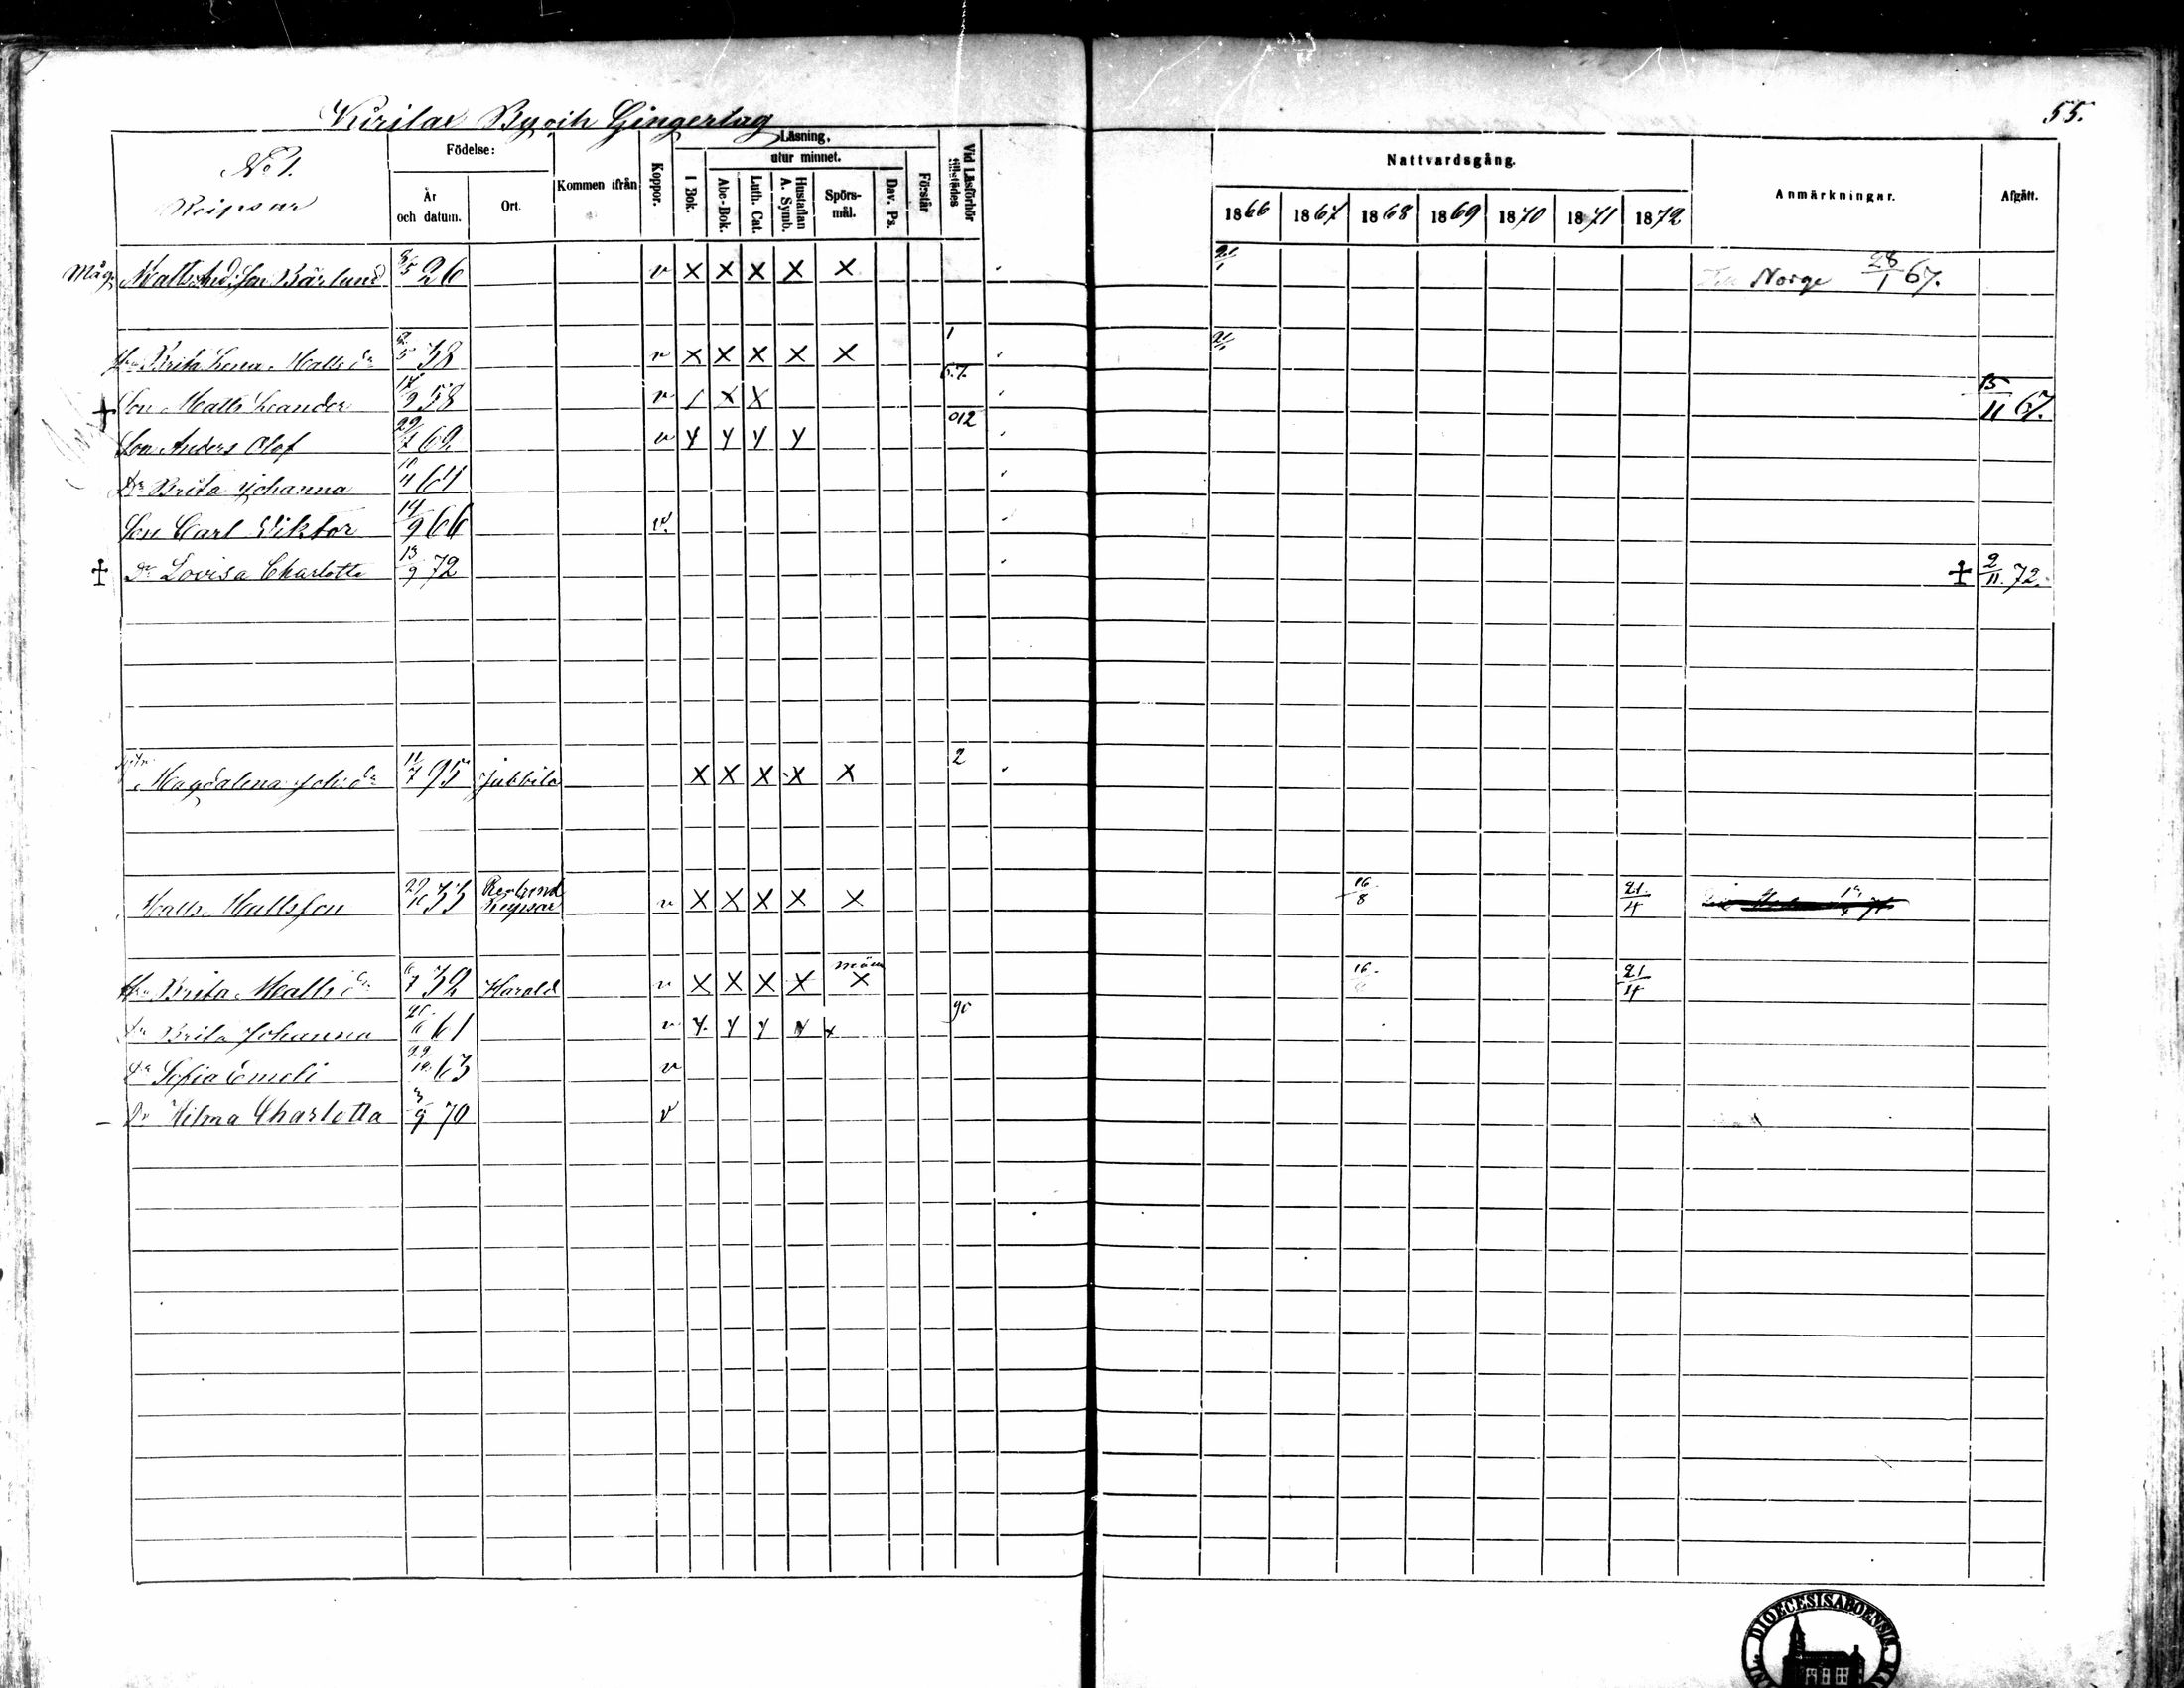 55.
Kirilax By och Gingerlag
No 1.
Reipsar
Födelse:
År och datum.
Ort.
Kommen ifrån
Koppor.
Läsning,
utur minnet.
I Bok.
Abc-Bok.
Luth. Cat.
Hustaflan A. Symb.
Spörs-mål.
Dav. Ps.
Förstår
Vid Läsförhör tillstädes
Nattvardsgång.
1866 1867 1868 1869 1870 1871 1872
Anmärkningar.
Afgått.
Måg. Matts And:son Bärlund 5 26 v X X X X X 21/1 Norge 28/1 67.
Brita Lena Matts dr 5 38 v X X X X X 1 21/1
Son Matts Leander 17/9 58 v X X 6.7. 15/11 67.
Son Anders Olof 29/7 62 v y y y y 012
Dr Brita Johanna 10/11 64
Son Carl Viktor 19/9 66 v.
‡ Dr Lovisa Charlotte 13/9 72 ‡ 2/11. 72.
Magdalena Joh:dr 11/7 95 Jubbila X X X X X 2
Matts Mattsson 29/10 33 Reipsar v X X X X X 16/8 21/4
Brita Matts dr 6/7 32 Harald v X X X X X 16 21/4
dr Brita Johanna 61 v y. y y y x 90
dr Sofia Emeli 29/10 63 v
Dr Hilma Charlotta 3/9 70 v
DIOECESIS ABOENSIS